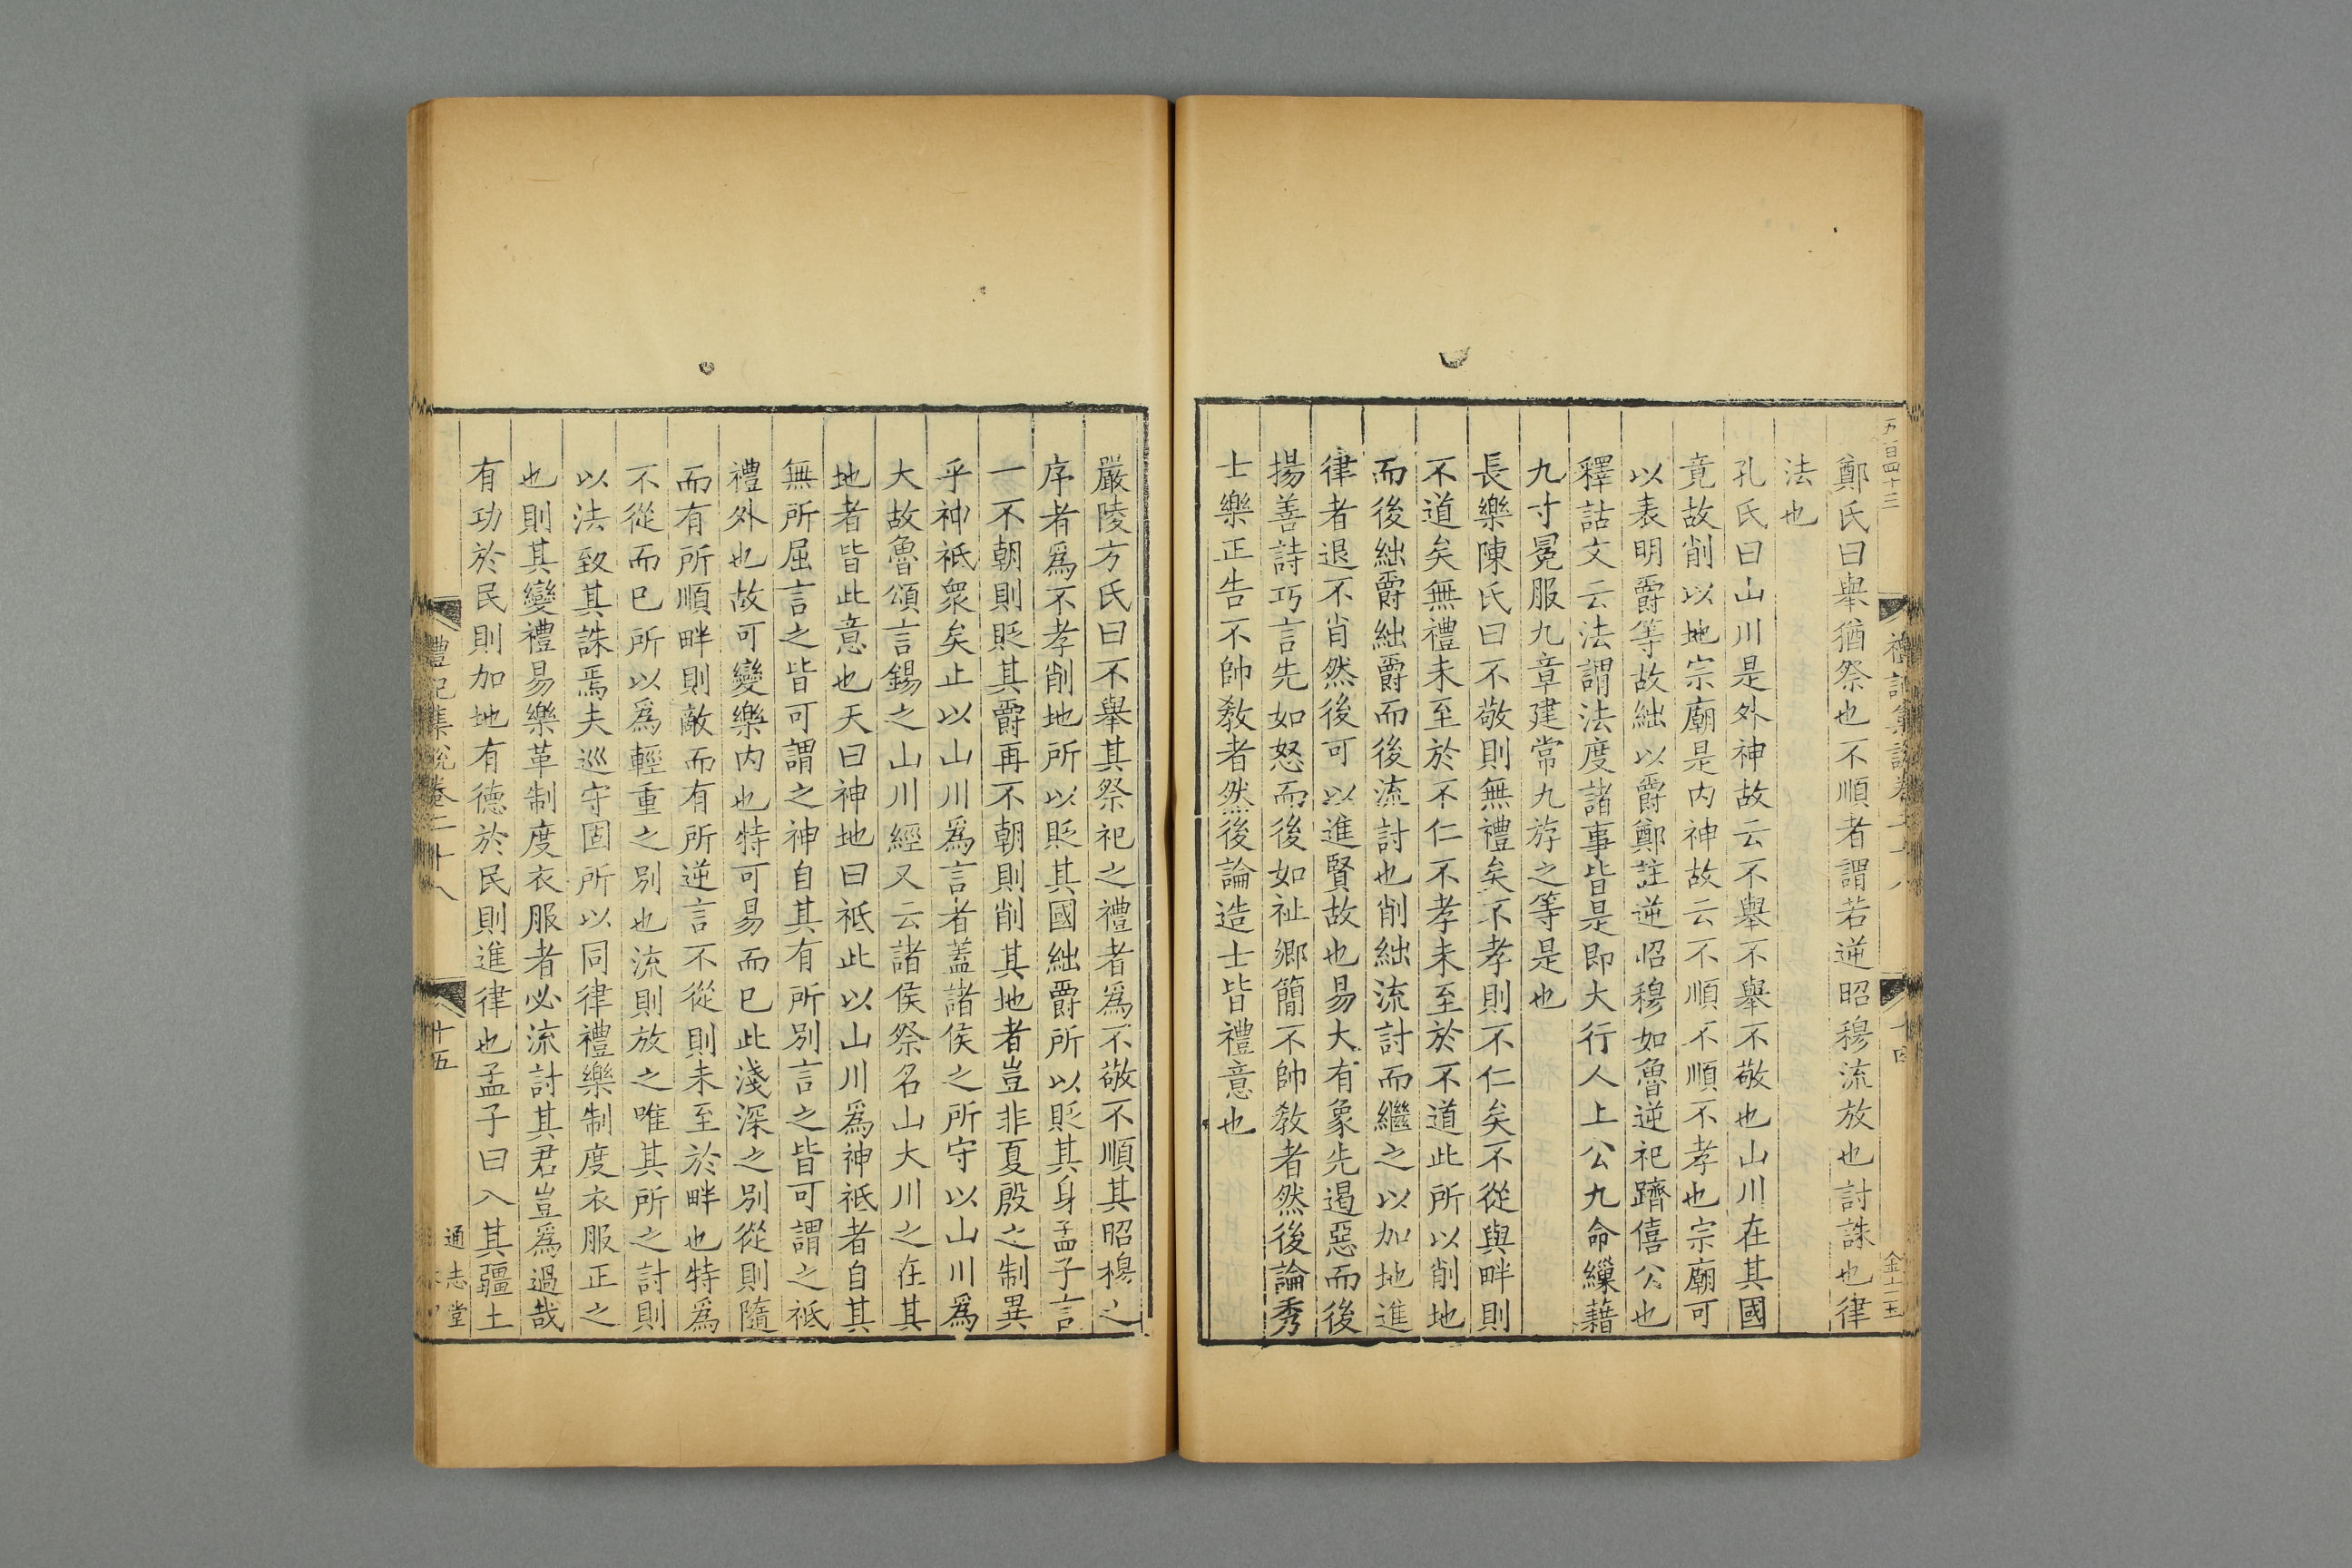 五百四十三
禮記集說卷二十八
十四
金士玉
鄭氏曰舉猶祭也不順者謂若逆昭穆流放也討誅也律
法也
孔氏曰山川是外神故云不舉不舉不敬也山川在其國
竟故削以地宗廟是內神故云不順不順不孝也宗廟可
以表明爵等故絀以爵鄭註逆昭穆如魯逆祀躋僖公也
釋詁文云法謂法度諸事皆是即大行人上公九命繅藉
九寸冕服九章建常九斿之等是也
長樂陳氏曰不敬則無禮矣不孝則不仁矣不從與畔則
不道矣無禮未至於不仁不孝未至於不道此所以削地
而後絀爵絀爵而後流討也削絀流討而繼之以加地進
律者退不肖然後可以進賢故也易大有象先遏惡而後
揚善詩巧言先如怒而後如祉鄉簡不帥教者然後論秀
士樂正告不帥教者然後論造士皆禮意也
嚴陵方氏曰不舉其祭祀之禮者爲不敬不順其昭穆之
序者爲不孝削地所以貶其國絀爵所以貶其身孟子言
一不朝則貶其爵再不朝則削其地者豈非夏殷之制異
乎神祇衆矣止以山川爲言者蓋諸侯之所守以山川爲
大故魯頌言錫之山川經又云諸侯祭名山大川之在其
地者皆此意也天曰神地曰祇此以山川爲神祇者自其
無所屈言之皆可謂之神自其有所別言之皆可謂之祇
禮外也故可變樂內也特可易而已此淺深之別從則隨
而有所順畔則敵而有所逆言不從則未至於畔也特爲
不從而已所以爲輕重之別也流則放之唯其所之討則
以法致其誅焉夫巡守固所以同律禮樂制度衣服正之
也則其變禮易樂革制度衣服者必流討其君豈爲過哉
有功於民則加地有德於民則進律也孟子曰入其疆土
禮記集說卷二十八
十五
通志堂